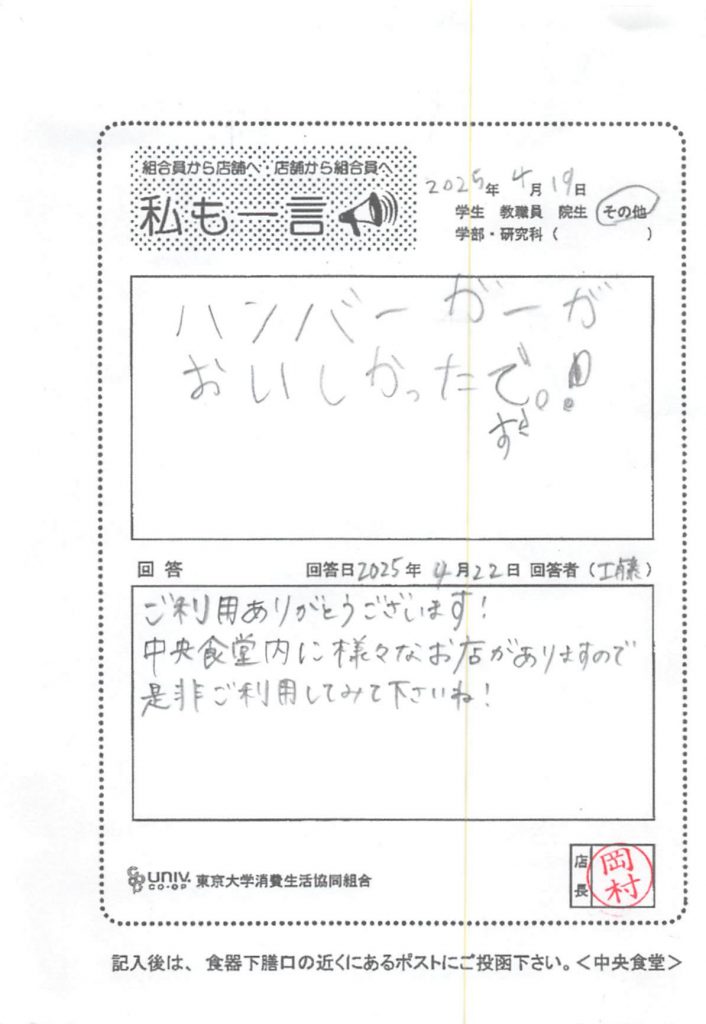 組合員から店舗へ・店舗から組合員へ
私も一言
2025年 4月 19日
学生 教職員 院生 その他
学部・研究科（ ）
ハンバーガーが
おいしかったで。!
すき
回答 回答日2025年 4月22日 回答者（工藤）
ご利用ありがとうございます!
中央食堂内に様々なお店がありますので
是非ご利用してみて下さいね!
UNIV. CO-OP 東京大学消費生活協同組合
店長 岡村
記入後は、食器下膳口の近くにあるポストにご投函下さい。＜中央食堂＞